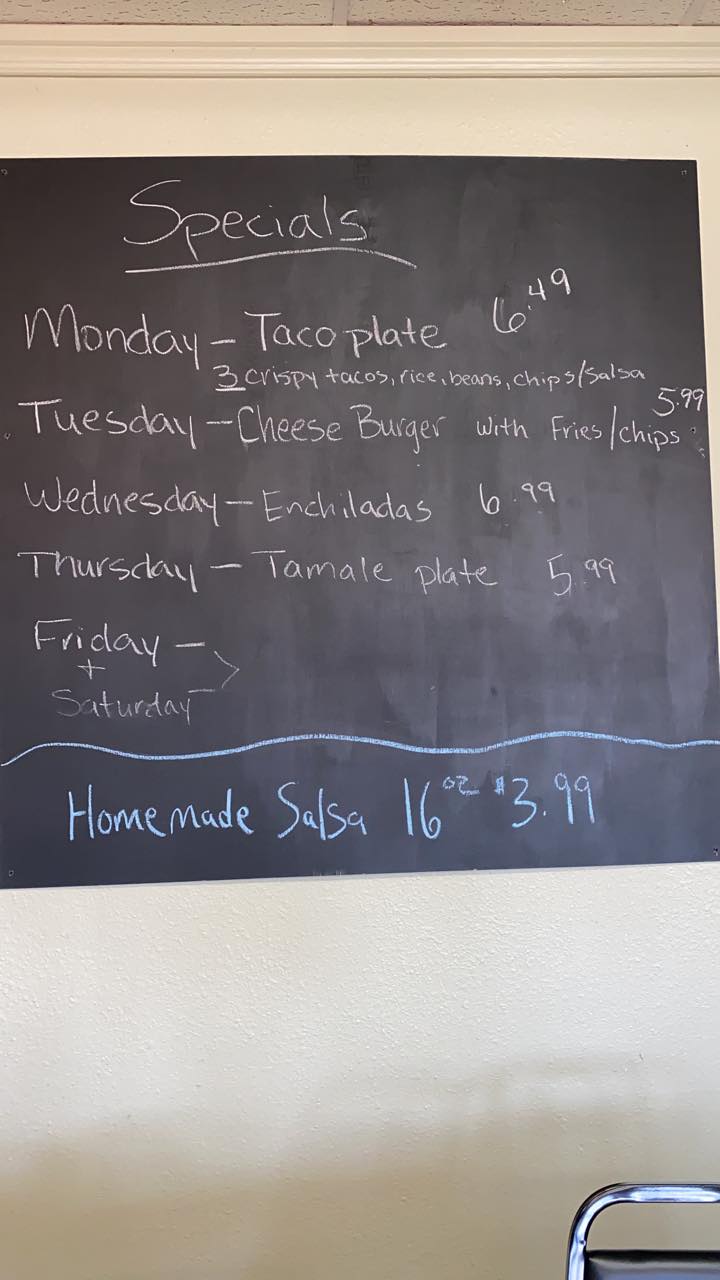 Specials
Monday - Taco plate 6.49
3 crispy tacos, rice, beans, chips/salsa
Tuesday - Cheese Burger with Fries/chips 5.99
Wednesday - Enchiladas 6.99
Thursday - Tamale plate 5.99
Friday -
+
Saturday -
Homemade Salsa 16 oz $3.99